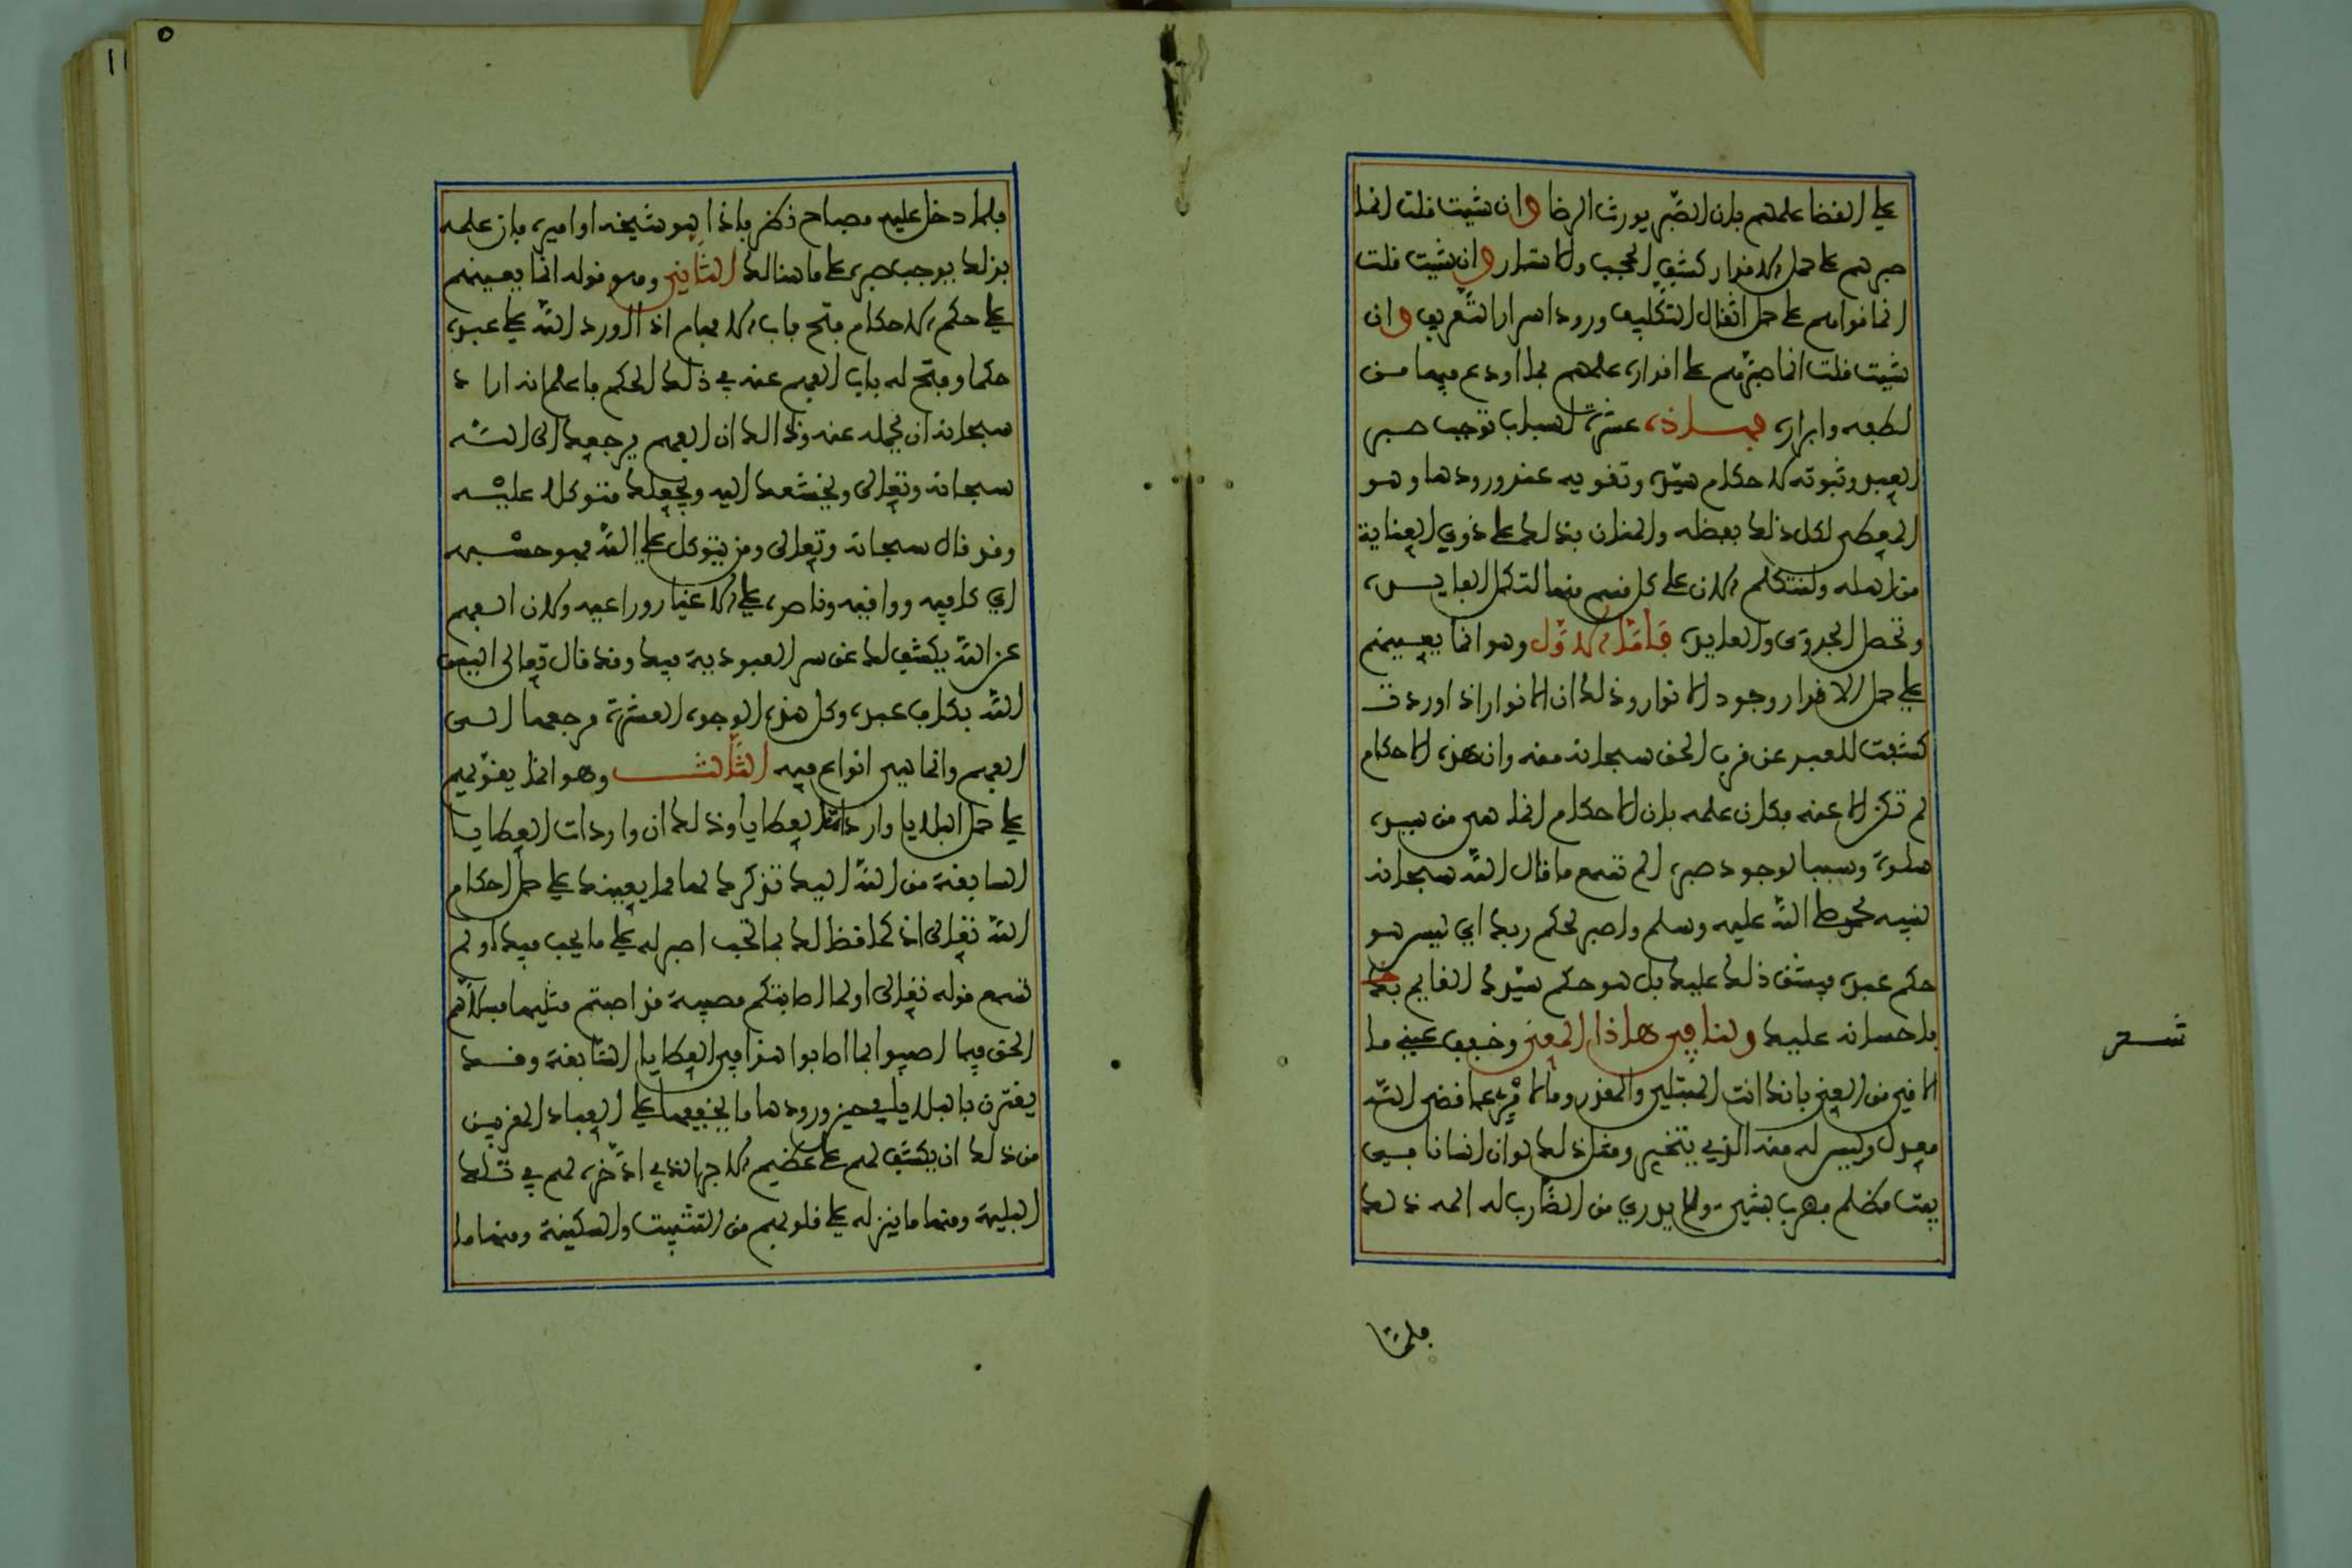 على القضا علمهم بان الصبر يورث الرضا وان شيت قلت انما
صبرهم على حمل الاقدار كشف الحجب والاستار وان شيت قلت
انما قواهم على حمل اثقال التكليف ورود اسرار التعريف وان
شيت قلت انما صبرهم على اقداره علمهم بما اودع فيها من
لطفه وابراره فهاذه عشرة اسباب توجب صبر
العبد وثبوته لاحكام سيده وتقويه عند ورودها وهو
المعطى لكل ذلك بفضله والمنان بذلك على ذوي العناية
من اهله ولنتكلم الان على كل قسم منها لتكمل الفايده
وتحصل الجدوى والعايدة فاما الاول وهو انما يعينهم
على حمل الاقدار وجود الانوار وذلك ان الانوار اذا وردت
كشفت للعبد عن قرب الحق سبحانه منه وان هذه الاحكام
لم تكن الا عنه فكان علمه بان الاحكام انما هى من سيده
سلوة وسببا لوجود صبره الم تسمع ما قال الله سبحانه
لنبيه محمد صلى الله عليه وسلم واصبر لحكم ربك اي ليس هو
حكم غيره فيشق ذلك عليك بل هو حكم سيدك القايم
باحسانه عليك ولنا في هاذا المعنى وخفف عني ما
الاقي من العنى بانك انت المبتلي والمقدر وما لامرئ عما قضى الله
معدل وليس له منه الذي يتخير ومثل ذلك لو ان انسانا في
بيت مظلم فضرب بشيء ولا يدري من الضارب له
فلما
تستر
فلما دخل عليه مصباح نظر فاذا هو شيخه او اميره فان علمه
بذلك يوجب صبره على ما هنالك الثاني وهو قوله انما يعينهم
على حكم الاحكام فتح باب الافهام اذا اورد الله على عبده
حكما وفتح له باب الفهم عنه في ذلك الحكم فاعلم انه اراد
سبحانه ان يحمله عنه وذالك ان الفهم يرجعك الى الله
سبحانه وتعالى ويخشعك اليه ويجعلك متوكلا عليه
وقد قال سبحانه وتعالى ومن يتوكل على الله فهو حسبه
اي كافيه وواقيه وناصره على الاغيار وراعيه ولان الفهم
عن الله يكشف لك عن سر العبودية فيك وقد قال تعالى اليس
الله بكاف عبده وكل هذه الوجوه العشرة مرجعها الى
الفهم وانما هى انواع فيه الثالث وهو انما يقويهم
على حمل البلايا واردات العطايا وذلك ان واردات العطايا
السابقة من الله اليك تذكرك لها مما يعينك على حمل احكام
الله تعالى اذ كما قضى لك بما تحب اصبر له على ما يحب فيك او لم
تسمع قوله تعالى اولما اصابتكم مصيبة قد اصبتم مثليها فسلاهم
الحق فيما اصيبوا بما اصابوا هذا في العطايا السابقة وقد
يقترن بالبلايا في حين ورودها ما يخففها على العباد المقربين
من ذلك ان يكشف لهم على عظيم الاجر الذي ادخره لهم في تلك
البلية ومنها ما ينزله على قلوبهم من التثبيت والسكينة ومنها ما